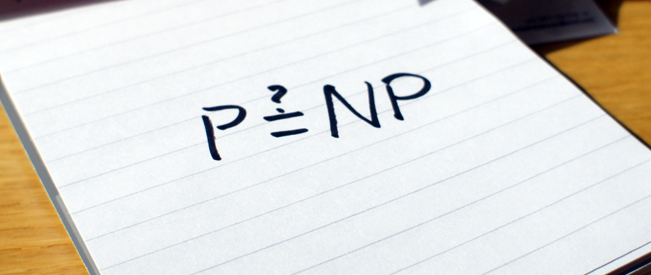 P ≟ NP